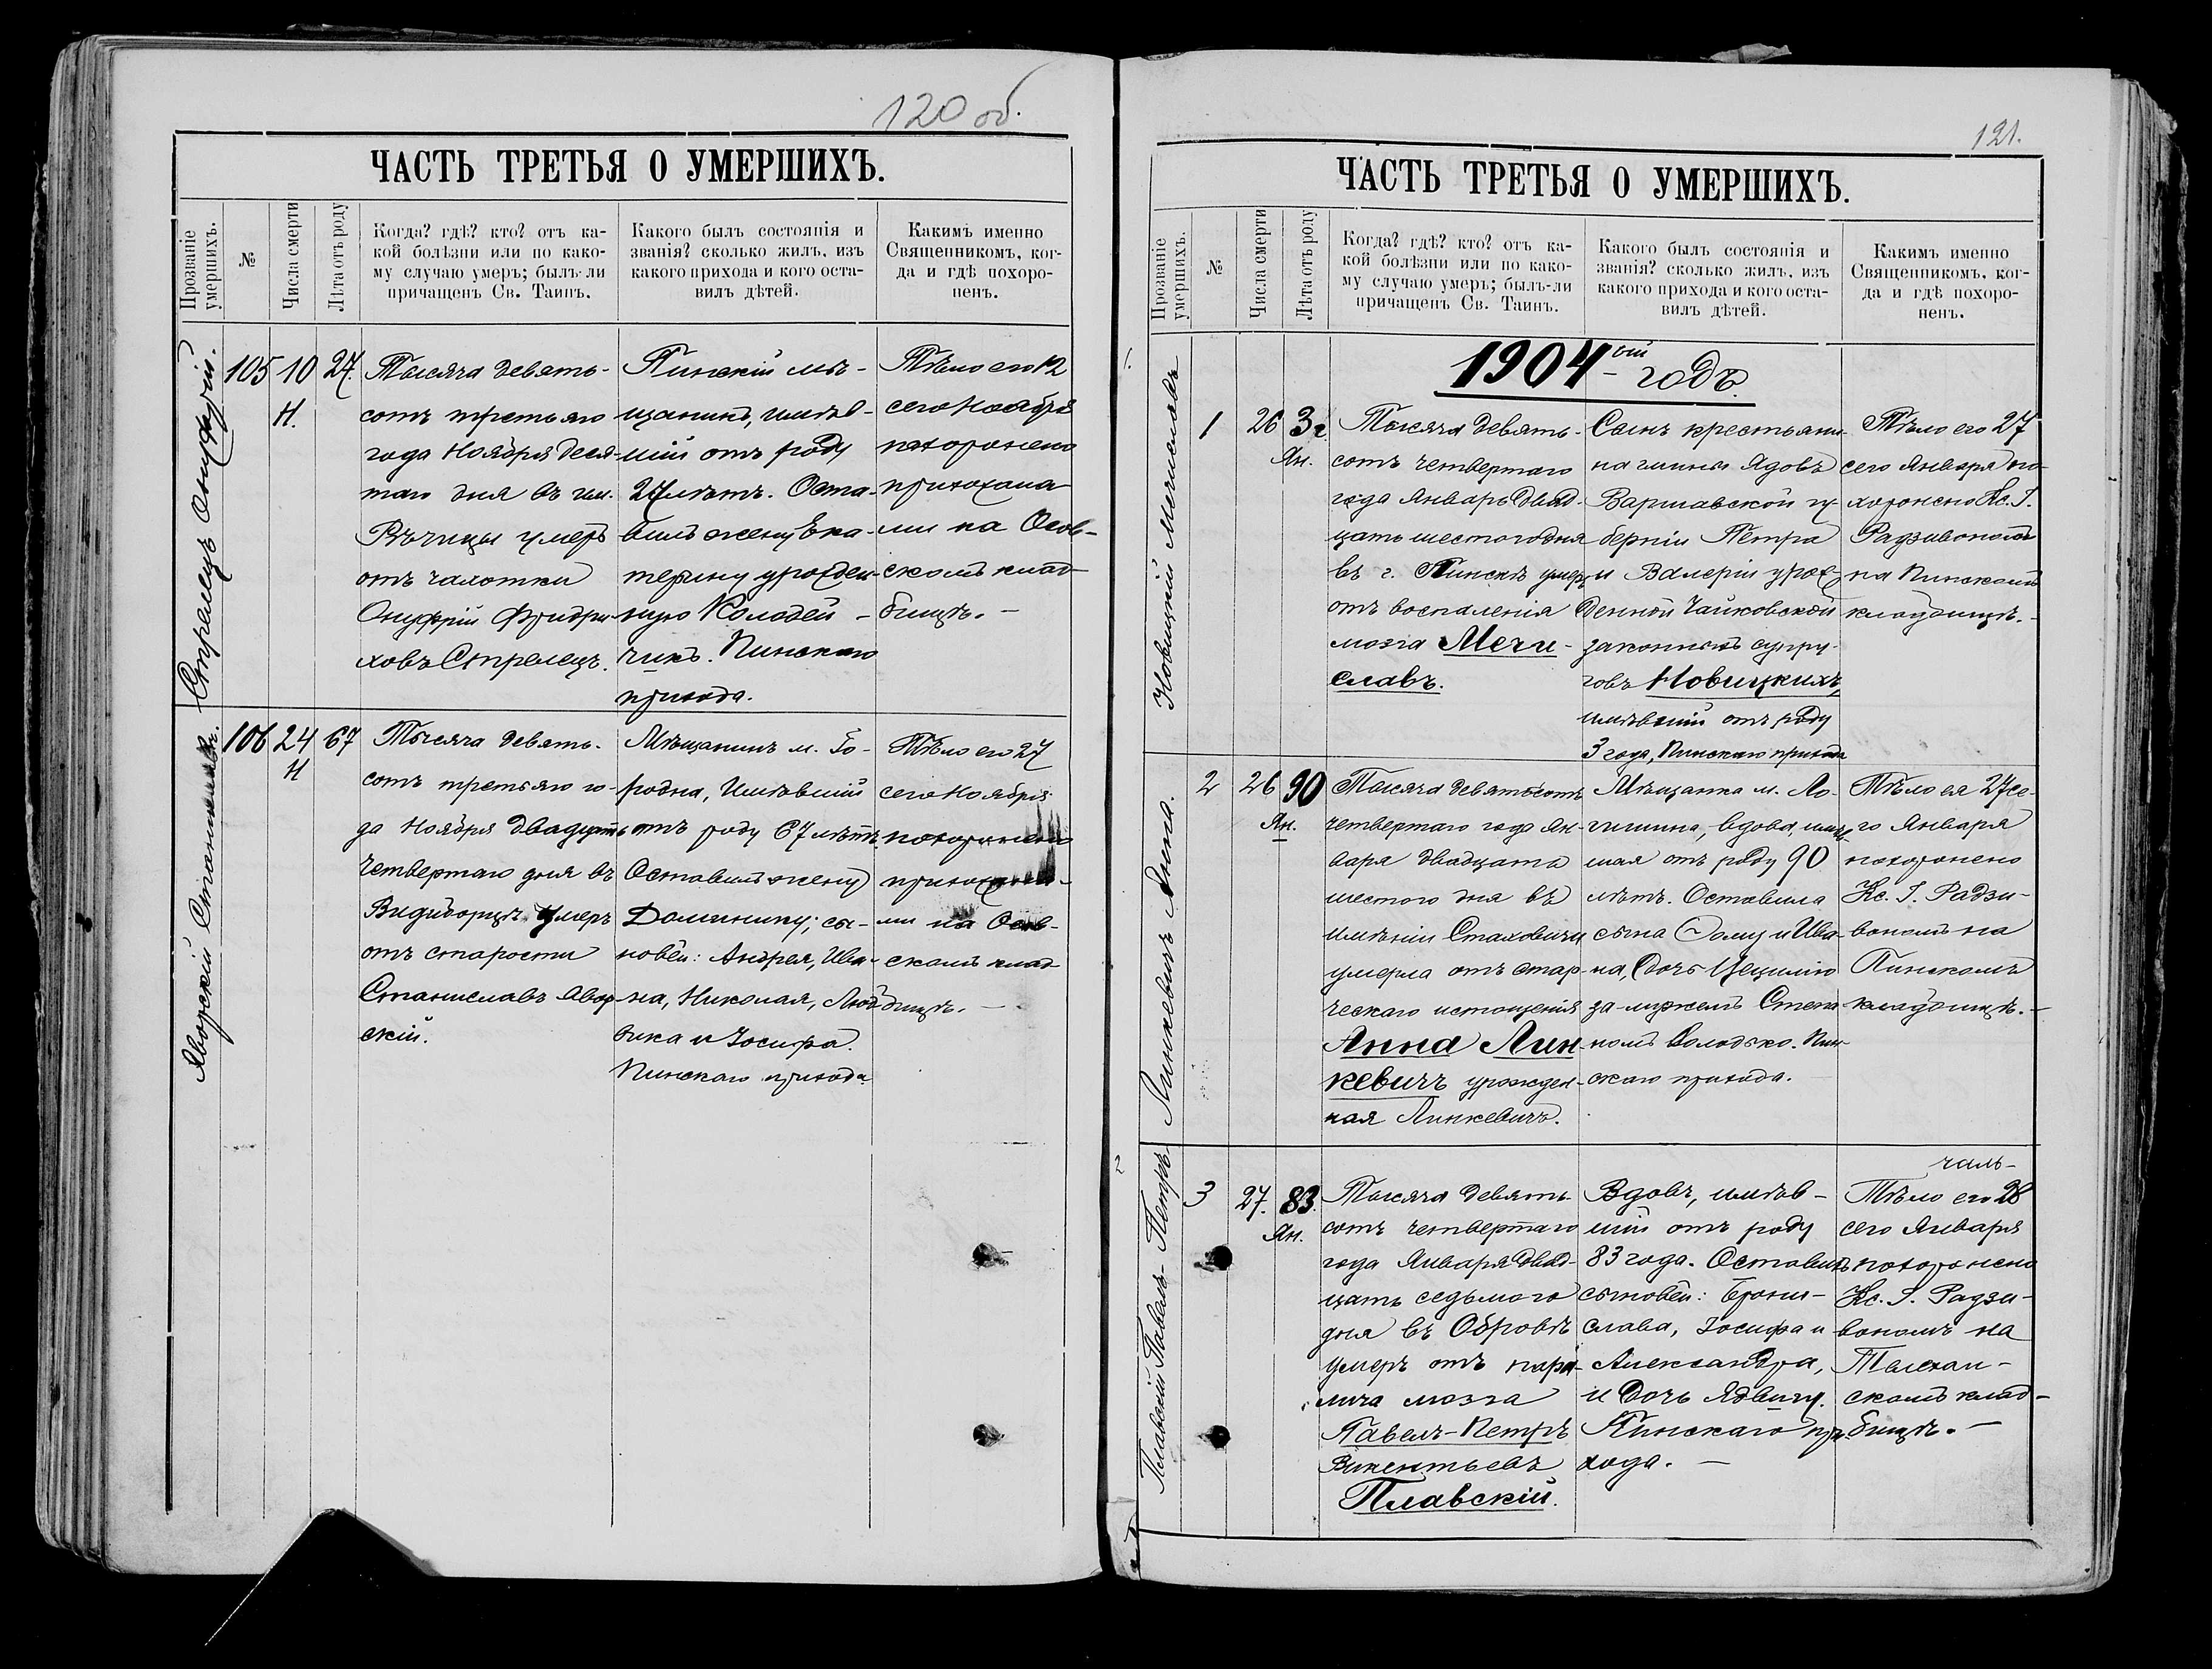 120 об.
ЧАСТЬ ТРЕТЬЯ О УМЕРШИХЪ.
Прозваніе умершихъ.
№
Числа смерти
Лѣта отъ роду
Когда? гдѣ? кто? отъ ка-
кой болѣзни или по како-
му случаю умеръ; былъ-ли
причащенъ Св. Таинъ.
Какого былъ состоянія и
званія? сколько жилъ, изъ
какого прихода и кого оста-
вилъ дѣтей.
Какимъ именно
Священникомъ, ког-
да и гдѣ похоро-
ненъ.
Стрелецъ Онуфрій.
105
10
Н.
27.
Тысяча девять-
сотъ третьяго
года Ноября деся-
таго дня въ им.
Рѣчицы умеръ
отъ чахотки
Онуфрій Фридри-
ховъ Стрелецъ.
Пинскій мѣ-
щанинъ, имѣв-
шій отъ роду
27 лѣтъ. Оста-
вилъ жену Ека-
терину урожден-
ную Колодей-
чикъ. Пинскаго
прихода.
Тѣло его 12
сего Ноября
похоронено
прихожана-
ми на Осов-
скомъ клад-
бищѣ. —
Яворскій Станиславъ.
106
24
Н
67
Тысяча девять-
сотъ третьяго го-
да Ноября двадцать
четвертаго дня въ
Видиборцѣ умеръ
отъ старости
Станиславъ Явор-
скій.
Мѣщанинъ м. Го-
родна, имѣвшій
отъ роду 67 лѣтъ.
Оставилъ жену
Доминику; сы-
новей: Андрея, Ива-
на, Николая, Людь-
вика и Іосифа.
Пинскаго прихода
Тѣло его 27
сего Ноября
похоронено
прихожана-
ми на Осов-
скомъ клад-
бищѣ. —
121.
ЧАСТЬ ТРЕТЬЯ О УМЕРШИХЪ.
Прозваніе умершихъ.
№
Числа смерти
Лѣта отъ роду
Когда? гдѣ? кто? отъ ка-
кой болѣзни или по како-
му случаю умеръ; былъ-ли
причащенъ Св. Таинъ.
Какого былъ состоянія и
званія? сколько жилъ, изъ
какого прихода и кого оста-
вилъ дѣтей.
Какимъ именно
Священникомъ, ког-
да и гдѣ похоро-
ненъ.
1904-ый годъ.
1.
Новицкій Мечиславъ
1
26
Ян.
3 г.
Тысяча девять-
сотъ четвертаго
года Январь двад-
цать шестого дня
въ г. Пинскѣ умеръ
отъ воспаленія
мозга Мечи-
славъ.
Сынъ крестьяни-
на гмины Ядовъ
Варшавской гу-
берніи Петра
и Валеріи урож-
денной Чайковской
законныхъ супру-
говъ Новицкихъ,
имѣвшій отъ роду
3 года, Пинскаго прихода
Тѣло его 27
сего Января по-
хоронено Кс. І.
Радзивономъ
на Пинскомъ
кладбищѣ. -
Линкевичъ Анна.
2
26
Ян.
90
Тысяча девятьсотъ
четвертаго года Ян-
варя двадцать
шестого дня въ
имѣніи Стаховичи
умерла отъ стар-
ческаго истощенія
Анна Лин-
кевичъ урожден-
ная Линкевичъ.
Мѣщанка м. Ло-
гишина, вдова, имѣв-
шая отъ роду 90
лѣтъ. Оставила
сына Фому и Ива-
на, дочь Цецилію
за-мужемъ Степа-
номъ Володько. Пин-
скаго прихода.
Тѣло ея 27 се-
го Января
похоронено
Кс. І. Радзи-
вономъ на
Пинскомъ
кладбищѣ. —
2
Плавскій Павелъ-Петръ
3
27.
Ян.
83.
Тысяча девять-
сотъ четвертаго
года Января двад-
цать седьмого
дня въ Обровѣ
умеръ отъ пара-
лича мозга
Павелъ-Петръ
Викентьевъ
Плавскій.
Вдовъ, имѣв-
шій отъ роду
83 года. Оставилъ
сыновей: Брони-
слава, Іосифа и
Александра,
и дочь Ядвигу.
Пинскаго при-
хода. —
чаль-
Тѣло его 28
сего Января
похоронено
Кс. І. Радзи-
вономъ на
Телехан-
скомъ клад-
бищѣ. —